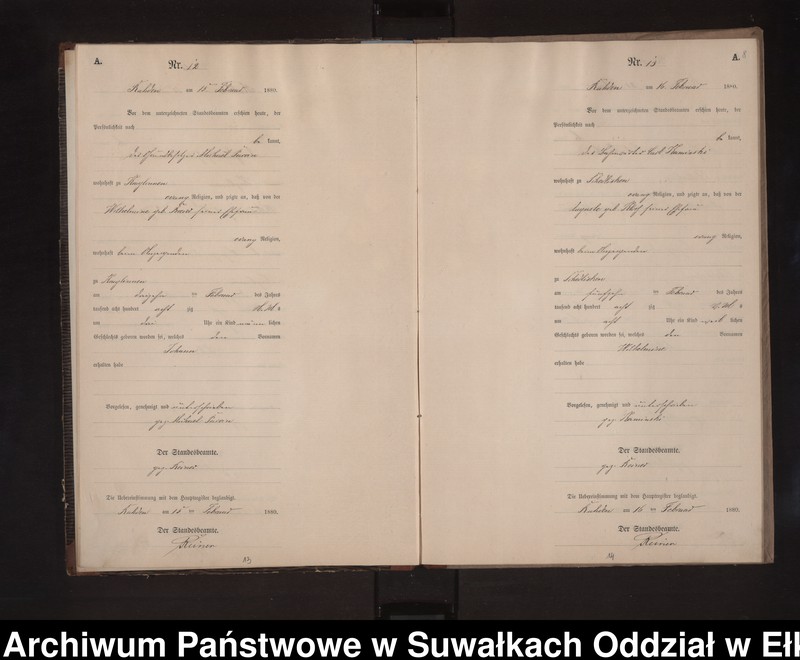 A.
Nr. 12
am 15ten Februar 1880.
Vor dem unterzeichneten Standesbeamten erschien heute, der
Persönlichkeit nach
be kannt,
wohnhaft zu
evang Religion, und zeigte an, daß von der
Wilhelmine geb. seiner Ehefrau
evang Religion,
wohnhaft beim Anzeigenden
zu
am dreizehn ten Februar des Jahres
tausend acht hundert acht zig
um drei Uhr ein Kind männ lichen
Geschlechts geboren worden sei, welches den Vornamen
Johann
erhalten habe
Vorgelesen, genehmigt und unterschrieben
gez. Michael
Der Standesbeamte.
gez. Reiner
Die Uebereinstimmung mit dem Hauptregister beglaubigt.
am 15 ten Februar 1880.
Der Standesbeamte.
Reiner
A.
8
Nr. 13
am 16. Februar 1880.
Vor dem unterzeichneten Standesbeamten erschien heute, der
Persönlichkeit nach
be kannt,
der Kaminski
wohnhaft zu
evang Religion, und zeigte an, daß von der
Auguste geb. seiner Ehefrau
evang Religion,
wohnhaft beim Anzeigenden
zu
am fünfzehn ten Februar des Jahres
tausend acht hundert acht zig
um acht Uhr ein Kind weib lichen
Geschlechts geboren worden sei, welches den Vornamen
Wilhelmine
erhalten habe
Vorgelesen, genehmigt und unterschrieben
gez. Kaminski
Der Standesbeamte.
gez. Reiner
Die Uebereinstimmung mit dem Hauptregister beglaubigt.
am 16 ten Februar 1880.
Der Standesbeamte.
Reiner
Archiwum Państwowe w Suwałkach Oddział w Ełk